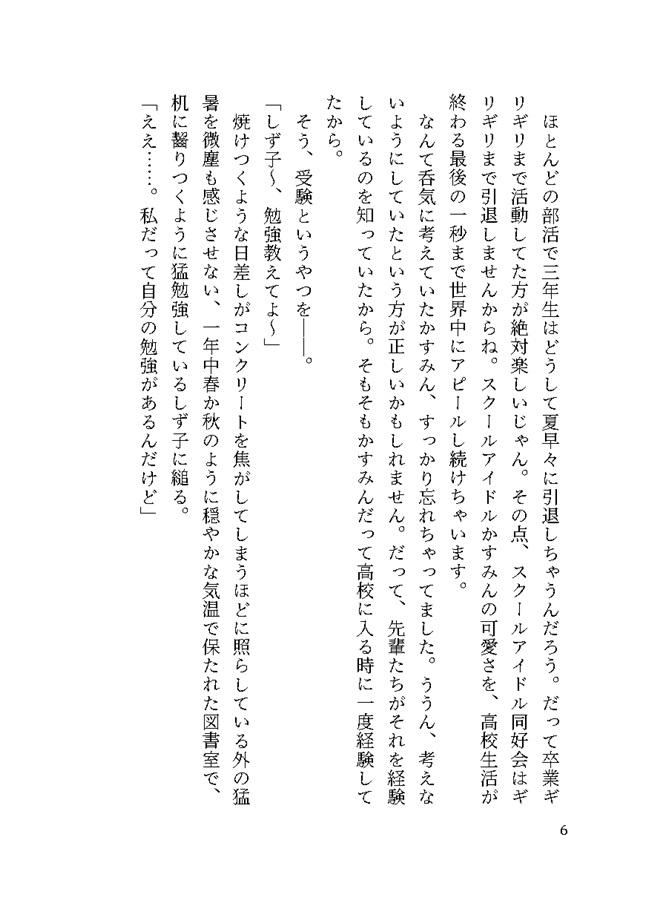 ほとんどの部活で三年生はどうして夏早々に引退しちゃうんだろう。だって卒業ギ
リギリまで活動してた方が絶対楽しいじゃん。その点、スクールアイドル同好会はギ
リギリまで引退しませんからね。スクールアイドルかすみんの可愛さを、高校生活が
終わる最後の一秒まで世界中にアピールし続けちゃいます。
　なんて呑気に考えていたかすみん、すっかり忘れちゃってました。ううん、考えな
いようにしていたという方が正しいかもしれません。だって、先輩たちがそれを経験
しているのを知っていたから。そもそもかすみんだって高校に入る時に一度経験して
たから。
　そう、受験というやつを――。
「しず子〜、勉強教えてよ〜」
　焼けつくような日差しがコンクリートを焦がしてしまうほどに照らしている外の猛
暑を微塵も感じさせない、一年中春か秋のように穏やかな気温で保たれた図書室で、
机に齧りつくように猛勉強しているしず子に縋る。
「ええ……。私だって自分の勉強があるんだけど」
6